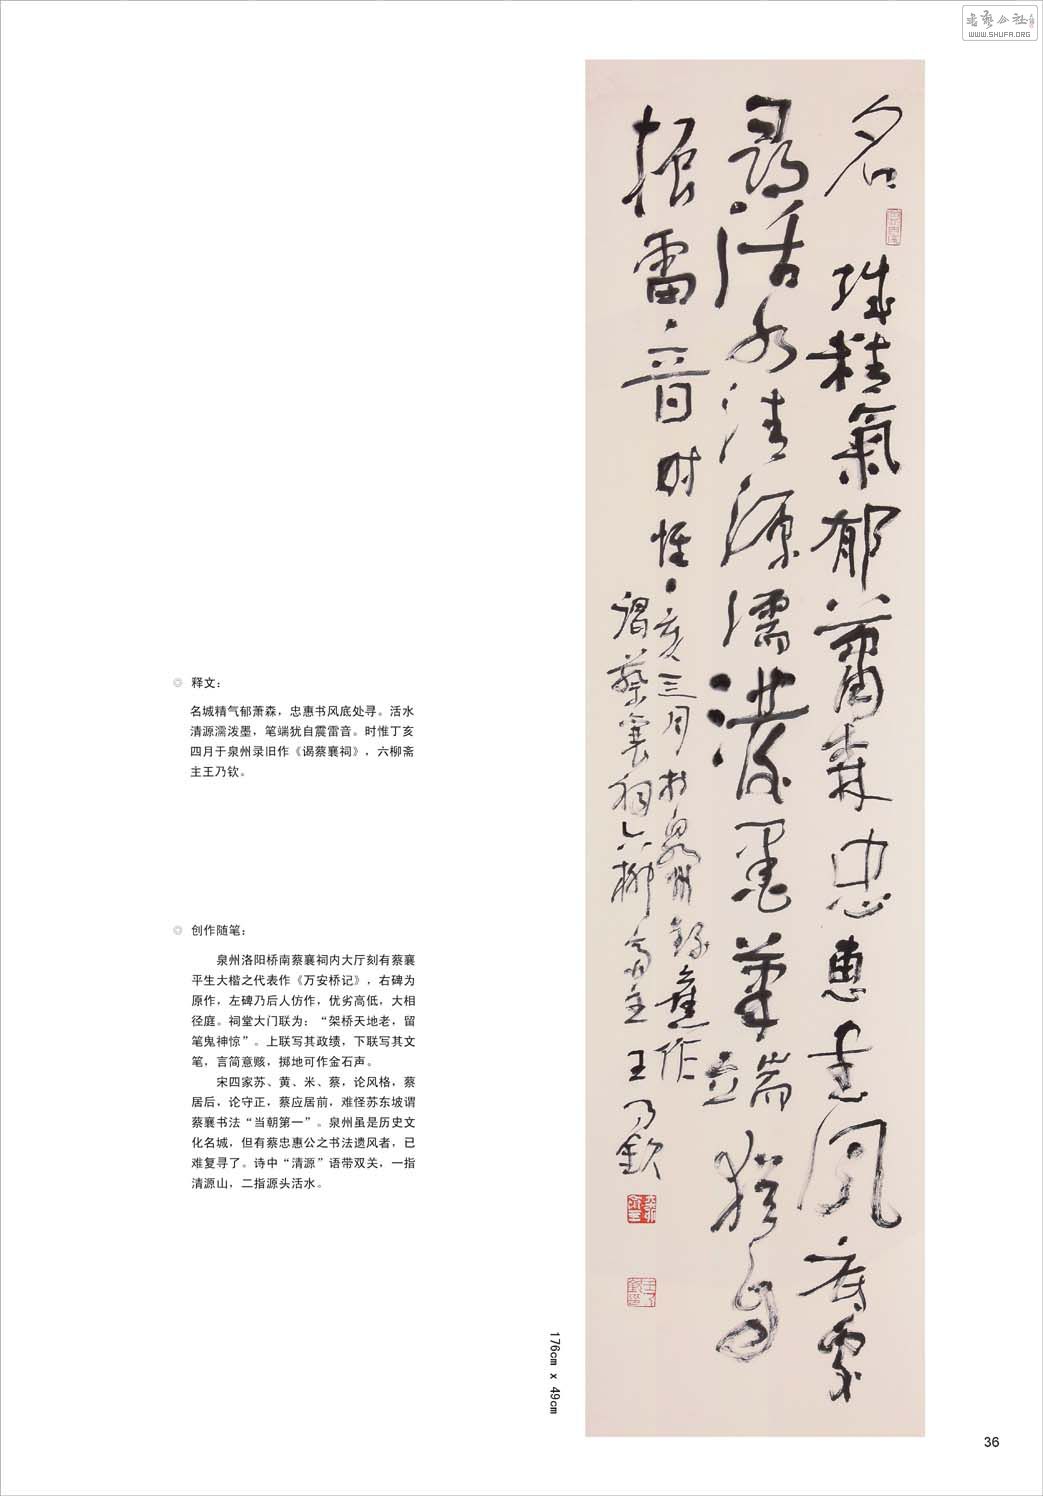 书艺公社
WWW.SHUFA.ORG
名城精氣郁蕭森忠惠書風底處
尋活水清源濡潑墨筆端猶自
振雷音时惟丁亥三月於泉州錄舊作
謁蔡襄祠六柳斋主王乃欽
◎ 释文：
名城精气郁萧森，忠惠书风底处寻。活水
清源濡泼墨，笔端犹自震雷音。时惟丁亥
四月于泉州录旧作《谒蔡襄祠》，六柳斋
主王乃钦。
◎ 创作随笔：
泉州洛阳桥南蔡襄祠内大厅刻有蔡襄
平生大楷之代表作《万安桥记》，右碑为
原作，左碑乃后人仿作，优劣高低，大相
径庭。祠堂大门联为：“架桥天地老，留
笔鬼神惊”。上联写其政绩，下联写其文
笔，言简意赅，掷地可作金石声。
宋四家苏、黄、米、蔡，论风格，蔡
居后，论守正，蔡应居前，难怪苏东坡谓
蔡襄书法“当朝第一”。泉州虽是历史文
化名城，但有蔡忠惠公之书法遗风者，已
难复寻了。诗中“清源”语带双关，一指
清源山，二指源头活水。
176cm x 49cm
36